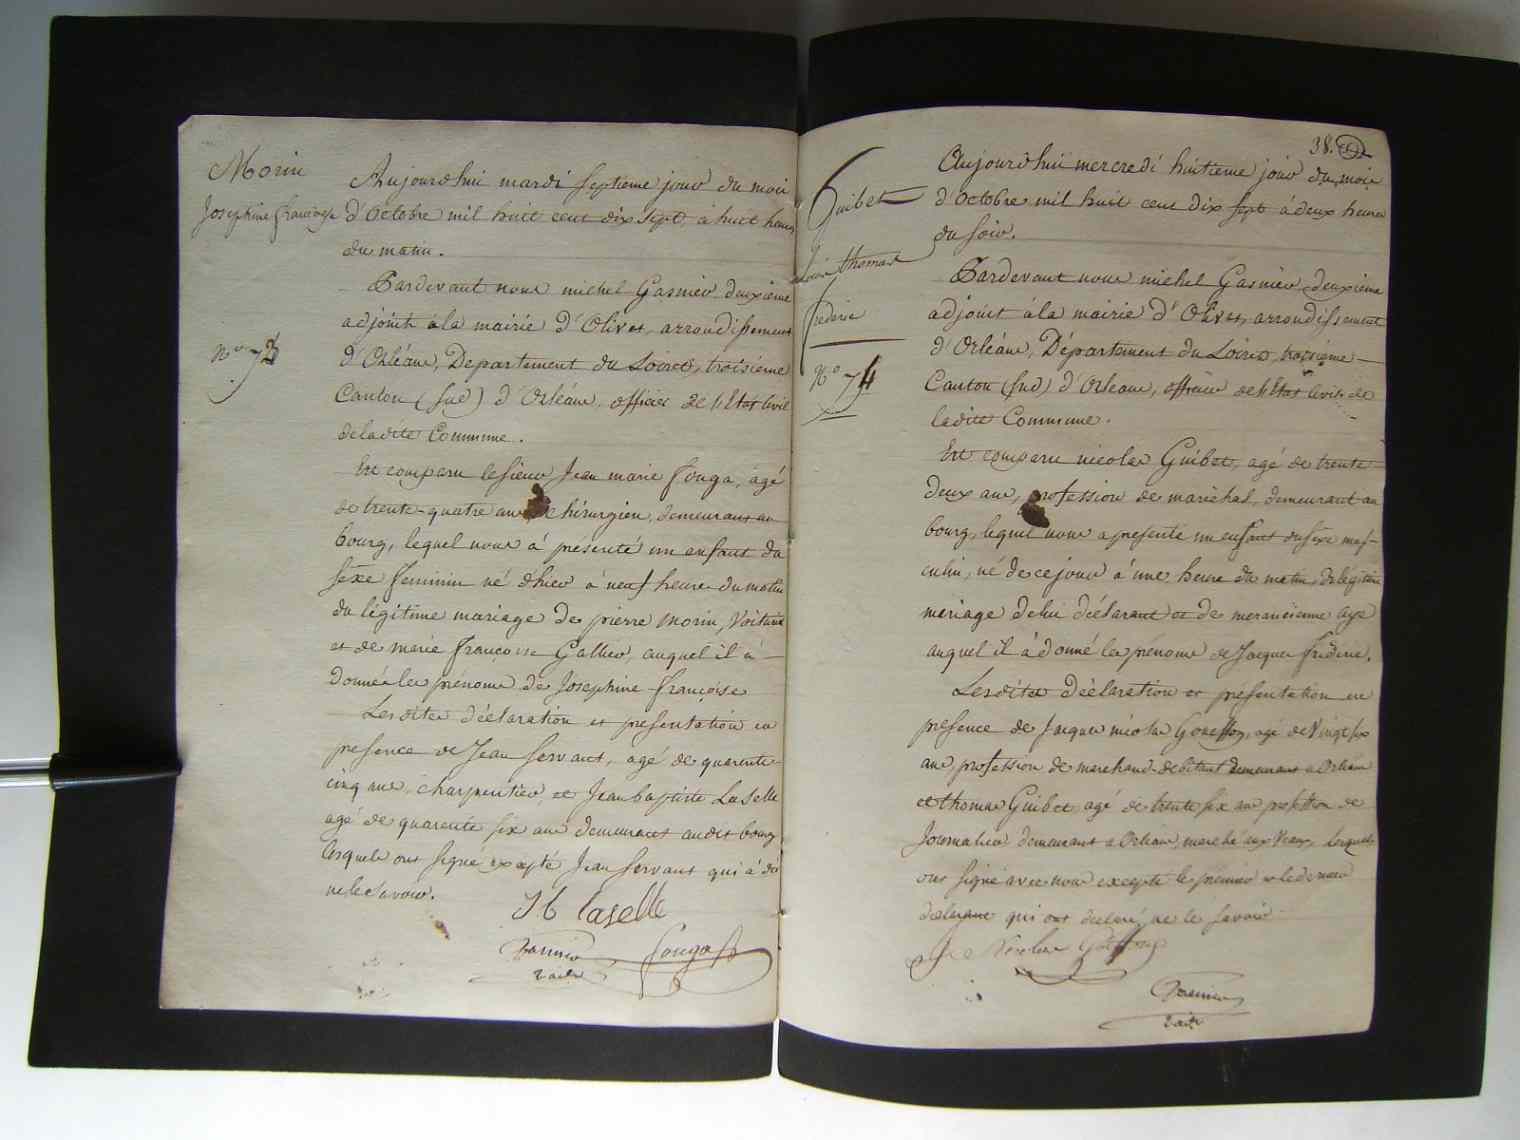 Morin
Josephine françoise
N.° 73
Aujourdhui mardi septieme jour du mois
d'Octobre mil huit cent dix sept, à huit heures
du matin.
Pardevant nous michel Gasnier deuxieme
adjoint à la mairie d'Olivet, arrondissement
d'Orléans, Departement du Loiret, troisieme
Canton (sud) d'Orléans, officier de l'Etat Civil
de ladite Commune.
Est comparu le sieur Jean marie fouga, âgé
de trente-quatre ans chirurgien, demeurant au
bourg, lequel nous à présenté un enfant du
sexe feminin né d'hier à neuf heures du matin
du légitime mariage de pierre morin, Voiturier
et de marie françoise Gallier, auquel il à
donné les prénoms de Josephine françoise
Lesdites déclaration et presentation en
presence de Jean servant, agé de quarente
cinq ans, charpentier, et Jean baptiste Laselle
agé de quarente six ans demeurants audit bourg
lesquels ont signé excepté Jean servant qui à dit
ne le savoir.
JB Laselle
Gasnier fouga
2 adj
38.
Guibet
Louis thomas
frederic
N.° 74
Aujourdhui mercredi huitieme jour du mois
d'Octobre mil huit cent dix sept à deux heures
du soir.
Pardevant nous michel Gasnier deuxieme
adjoint à la mairie d'Olivet, arrondissement
d'Orléans, Département du Loiret, troisième
Canton (sud) d'Orleans, officier de l'Etat Civil de
ladite Commune.
Est comparu nicolas Guibet, agé de trente
deux ans, profession de maréchal, demeurant au
bourg, lequel nous a presenté un enfant du sexe mas-
culin, né de ce jour à une heure du matin, du légitime
mariage de lui déclarant et de
auquel il à donné les prénoms de Jacques frideric.
Lesdites déclaration et presentation en
presence de Jacques nicolas Goueffon, agé de Vingt six
ans, profession de marchand demeurant a Orleans
et thomas Guibet agé de trente six ans profession de
Journalier demeurant a Orleans marché aux Veaux, lesquels
ont signé avec nous excepté le premier et le dernier
qui ont declaré ne le savoir
Nicolas Goueffon
Gasnier
2 adj